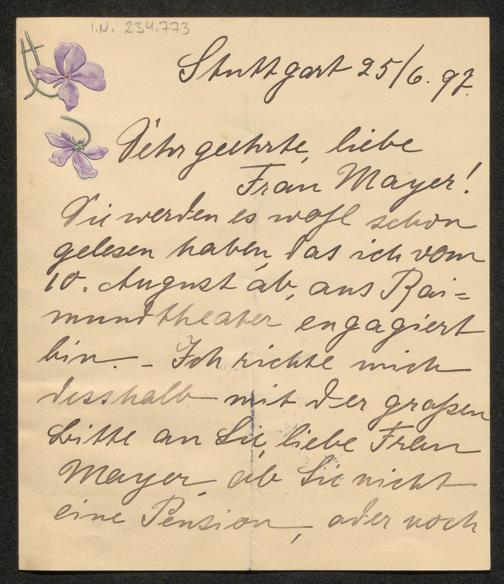 I.N. 234.773
Stuttgart 25/6. 97.
Sehr geehrte, liebe
Frau Mayer!
Sie werden es wohl schon
gelesen haben, das ich vom
10. August ab, ans Rai=
mundtheater engagiert
bin. – Ich richte mich
desshalb mit der großen
Bitte an Sie, liebe Frau
Mayer, ob Sie nicht
eine Pension, oder noch